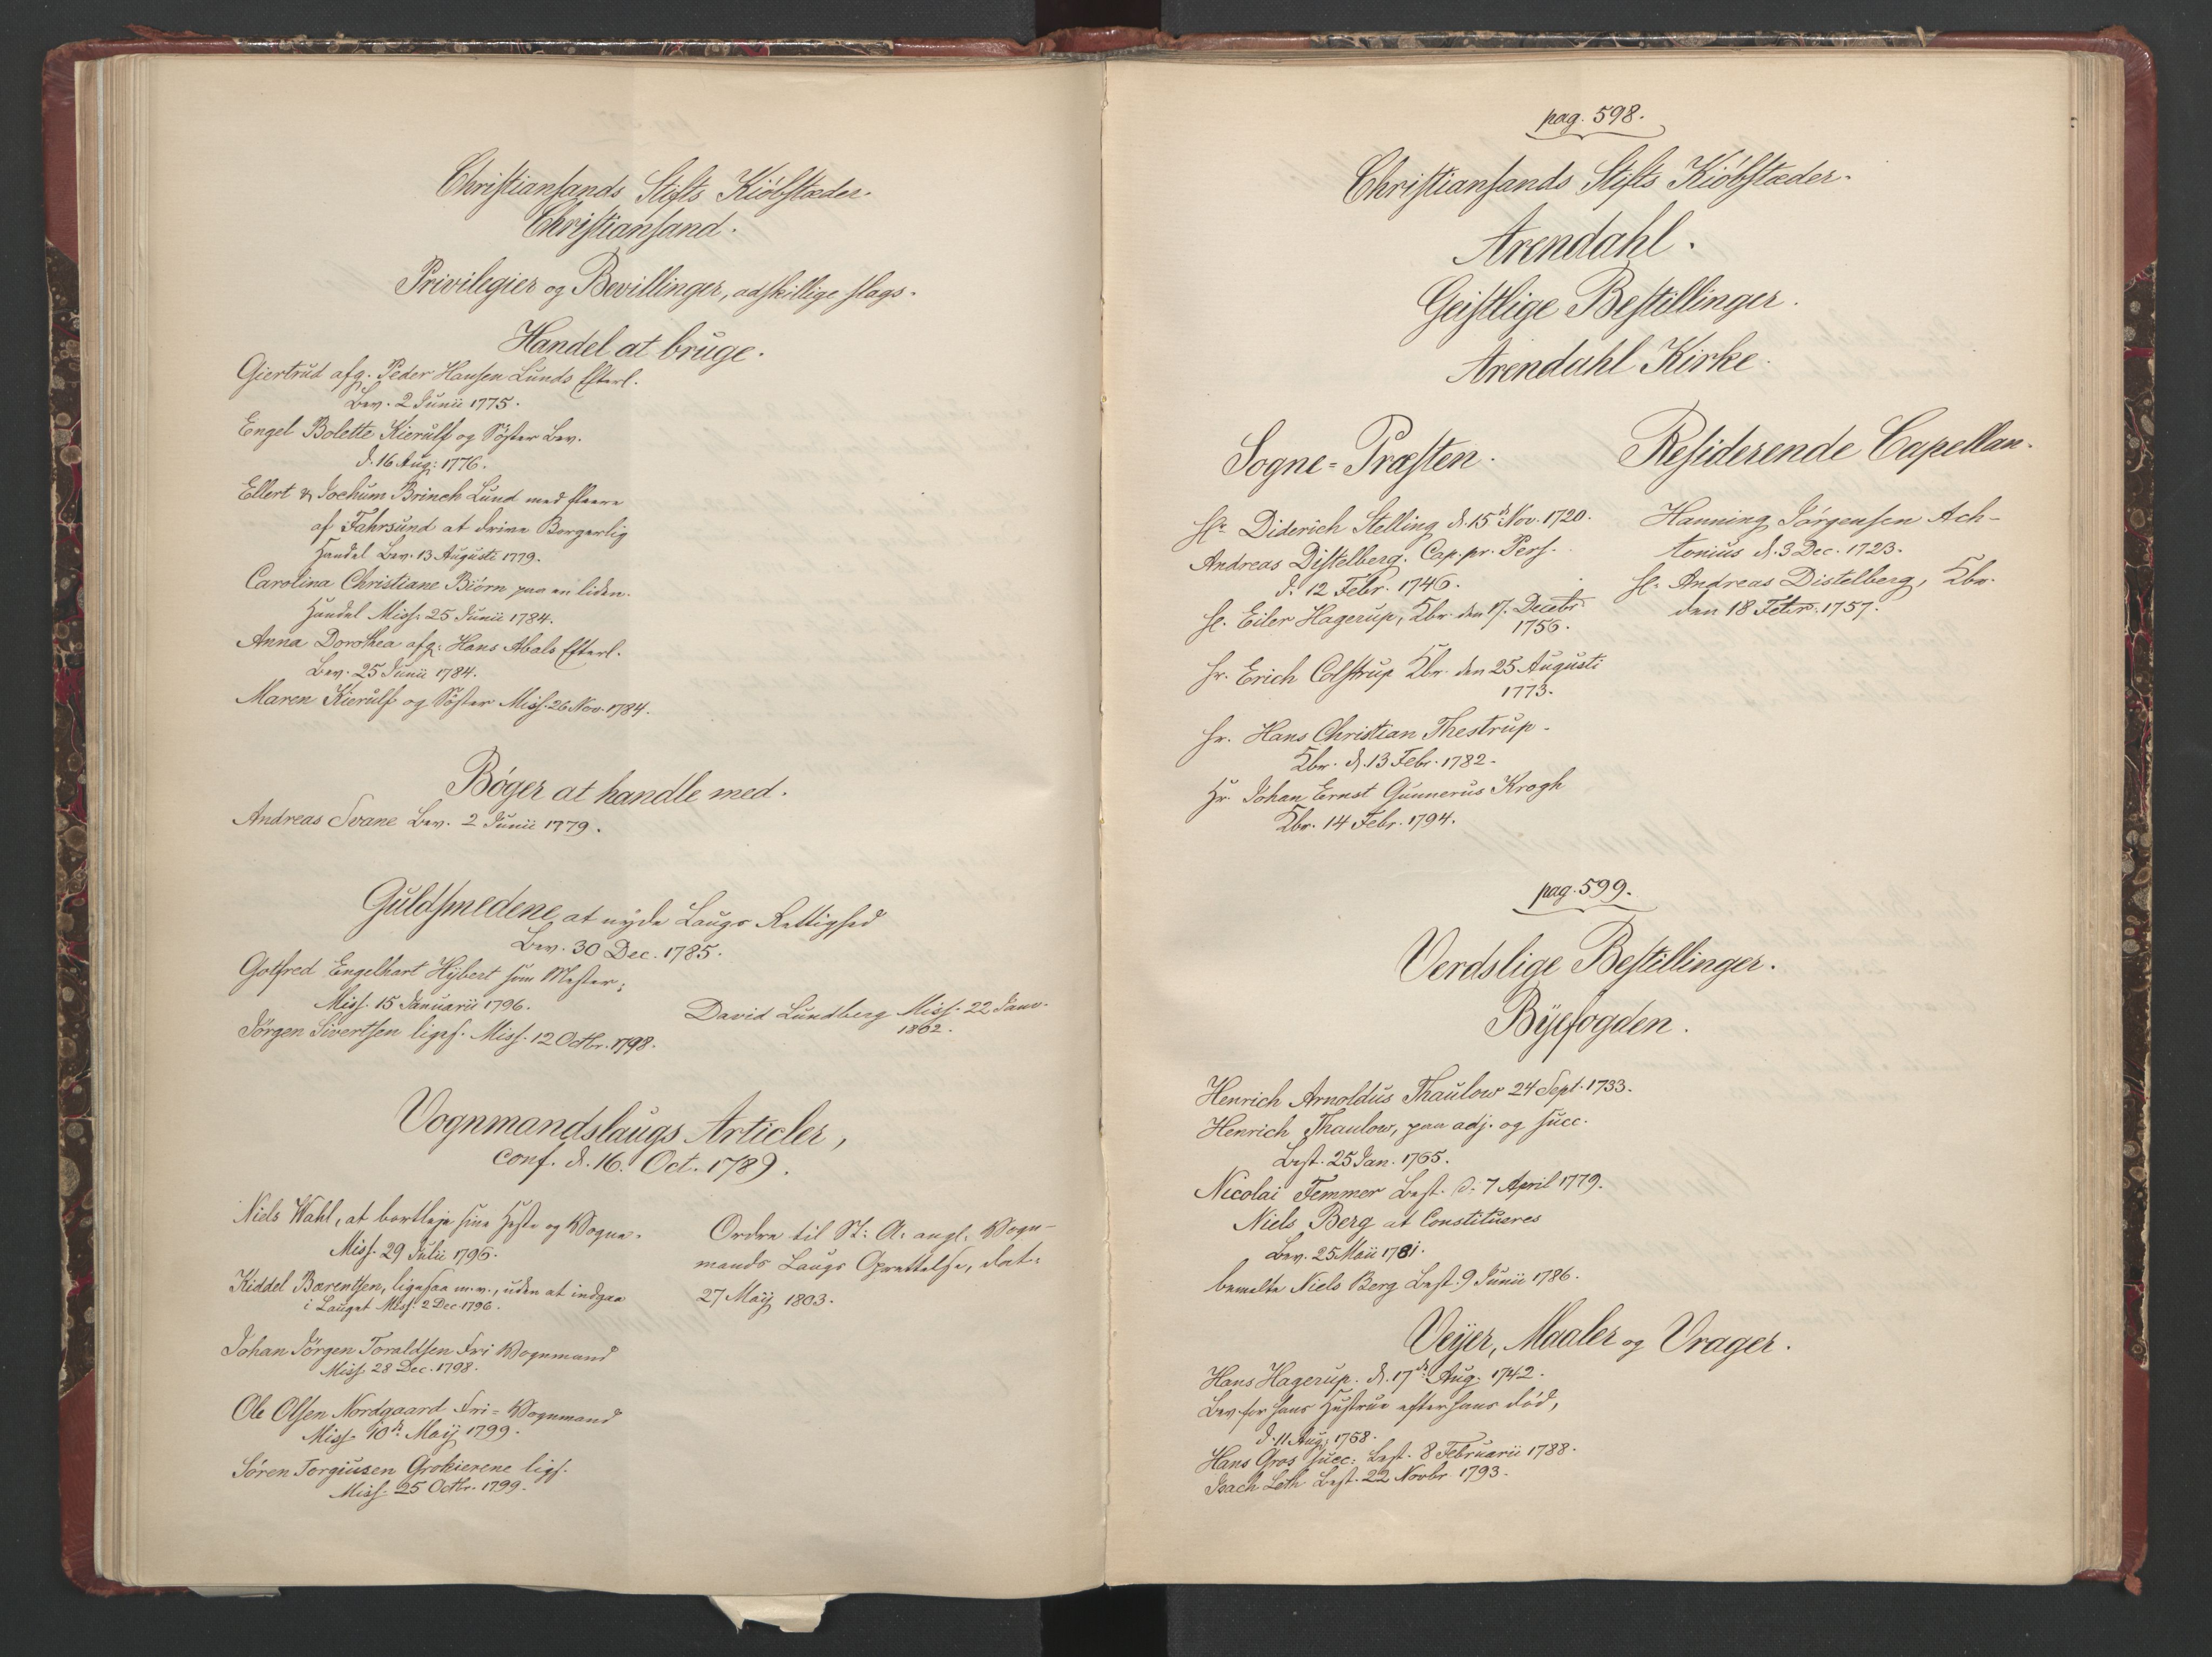 Christiansands Stifts Kiöbstæder.
Christiansand.
Privilegier og Bevillinger, adskillige slags.
Handel at bruge.
Giertrud afg. Peder Hansen Lunds Efterl.
Bev. 2 Junii 1775.
Engel Bolette Kierulf og Söster Bev.
d. 16 Aug: 1776.
Ellert & Jochum Brinch Lund med fleere
af Fahrsund at drive Borgerlig
Handel Bev. 13 Augusti 1779.
Carolina Christiane Biörn paa en liden
Handel Miss. 25 Junii 1784.
Anna Dorothea afg: Hans Abels Efterl.
Bev. 25 Junii 1784.
Maren Kierulf og Söster Miss. 26 Nov. 1784.
Böger at handle med.
Andreas Svane Bev. 2 Junii 1779.
Guldsmedene at nyde Laugs Rettighed
Bev. 30 Dec. 1785.
Gotfred Engelhart Hÿbert som Mester,
Miss. 15 Januarii 1796.
Jörgen Sivertsen ligef. Miss. 12 Octbr. 1798.
David Lundberg Miss. 22 Janv.
1802.
Vognmandslaugs Articler,
conf. d. 16. Oct. 1789.
Niels Wahl, at bortleje sine Heste og Vogne.
Miss. 29 Julii 1796.
Kiddel Bærentsen, ligesaa m.v., uden at indgaa
i Lauget Miss. 2 Dec. 1796.
Johan Jörgen Toraldsen Fri Vognmand
Miss. 28 Dec. 1798.
Ole Olsen Nordgaard Fri-Vognmand
Miss. 10de Maij 1799.
Sören Torgiusen Grokierene ligs.
Miss. 25 Octbr. 1799.
Ordre til St: A: angl. Vogn-
mands Laugs Oprettelse, dat:
27 Maÿ 1803.
pag. 598.
Christiansands Stifts Kiöbstæder.
Arendahl.
Geistlige Bestillinger.
Arendahl Kirke.
Sogne-Præsten.
Hr. Diderich Stelling d. 15de Nov. 1720.
Andreas Distelberg. Cap. pr. Pers.
d. 12 Febr. 1746.
Hr. Eiler Hagerup, Kbr. den 17. Decebr
1756.
Hr. Erich Colstrup Kbr. den 25 Augusti
1773.
Hr. Hans Christian Thestrup.
Kbr. d. 13 Febr. 1782.
Hr. Johan Ernst Gunnerus Krogh
Kbr. 14 Febr. 1794.
Residerende Capellan.
Hanning Jörgensen Ach-
tonius d. 3 Dec. 1723.
Hr. Andreas Distelberg, Kbr.
den 18 Febr. 1757.
pag. 599.
Verdslige Bestillinger.
Bÿefogden.
Henrich Arnoldus Thaulow 24 Sept. 1733.
Henrich Thaulow, paa adj. og succ.
Best. 25 Jan. 1765.
Nicolai Femmer Best. d. 7 April 1779.
Niels Berg at Constitueres
Bev. 25 Maii 1781.
bemelte Niels Berg Best. 9 Junii 1786.
Veÿer, Maaler og Vrager.
Hans Hagerup. d. 17de Aug. 1742.
Bev. for hans Hustrue efter hans död,
d. 11 Aug: 1758.
Hans Gros succ: Best. 8 Februarii 1788.
Isach Loth Best. 22 Novbr. 1793.